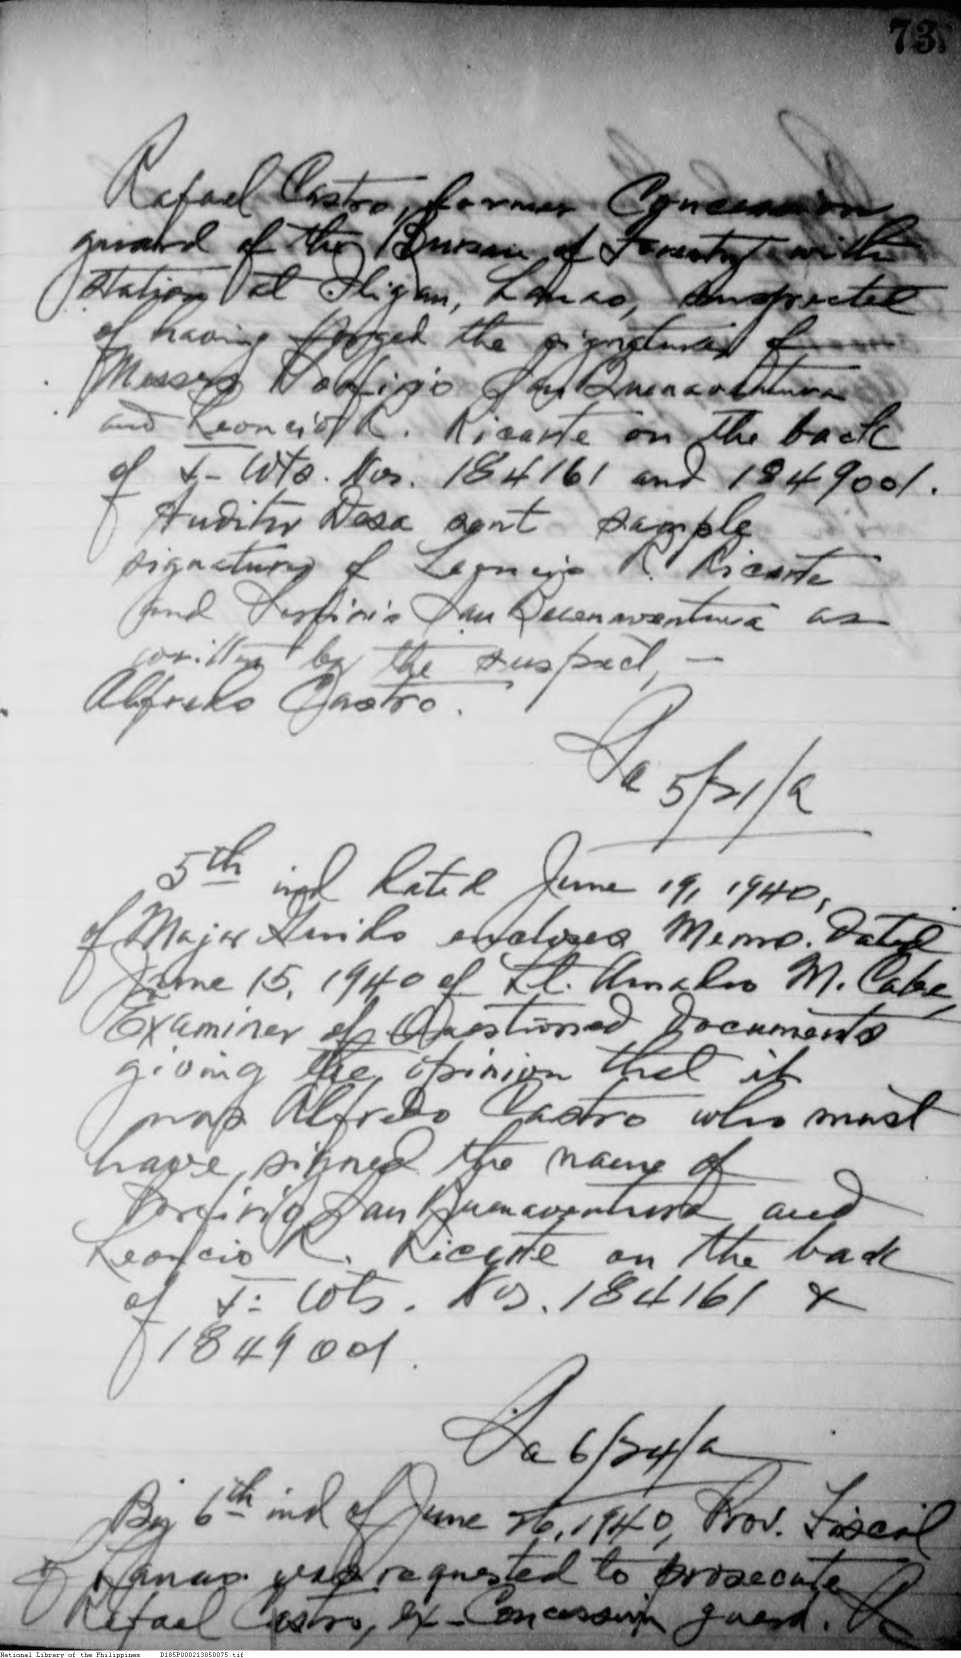 73
Rafael Castro, former Concession
guard of the Bureau of Forestry with
station at Iligan, Lanao, suspected
of having forged the signatures of
Messrs Porfirio San Buenaventura
and Leoncio R. Ricarte on the back
of T-Wts. Nos. 184161 and 1849001.
Auditor Dosa sent sample
signatures of Leoncio R. Ricarte
and Porfirio San Buenaventura as
written by the suspect, —
Alfredo Castro.
5/21/a
5th ind dated June 19, 1940,
of Major Guido encloses Memo. Dated
June 15, 1940 of Lt. Amado M. Cabe,
Examiner of Questioned Documents
giving the opinion that it
was Alfredo Castro who must
have signed the name of
Porfirio San Buenaventura and
Leoncio R. Ricarte on the back
of T-Wts. Nos. 184161 &
1849001.
6/24/a
By 6th ind of June 26, 1940, Prov. Fiscal
of Lanao was requested to prosecute
Rafael Castro, ex-Concession guard.
National Library of the Philippines D185P000213050075.tif